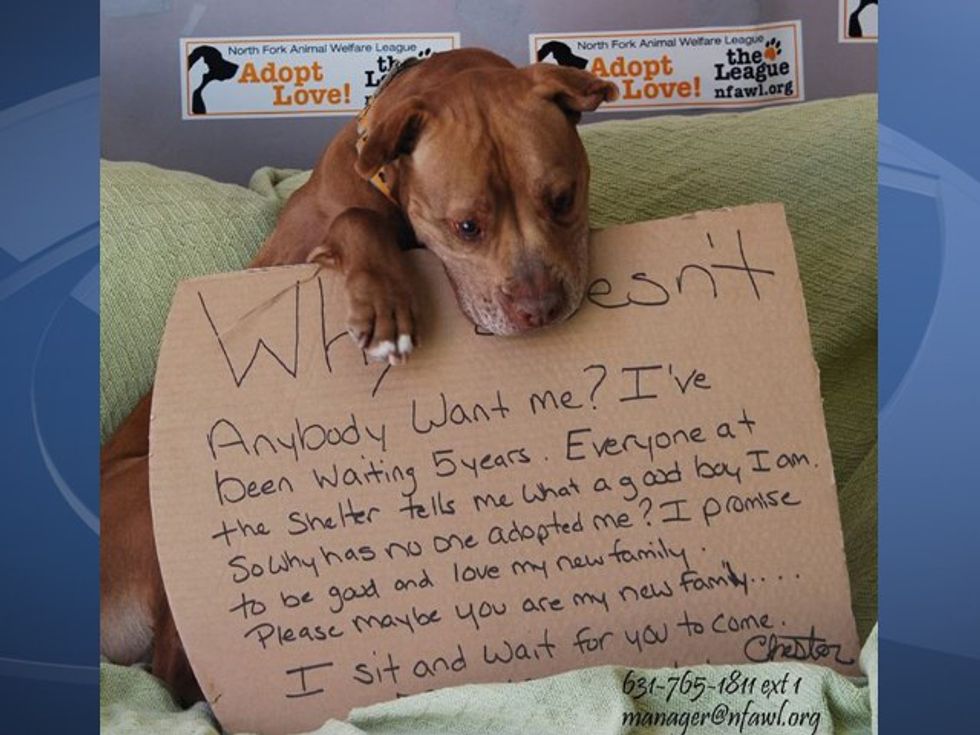 North Fork Animal Welfare League
Adopt
Love!
North Fork Animal Welfare League
Adopt
Love!
the
League
nfawl.org
esn't
Anybody Want me? I've
been waiting 5 years. Everyone at
the Shelter tells me what a good boy I am.
So why has no one adopted me? I promise
to be good and love my new family.
Please maybe you are my new family....
I sit and wait for you to come.
Chester
631-765-1811 ext 1
manager@nfawl.org